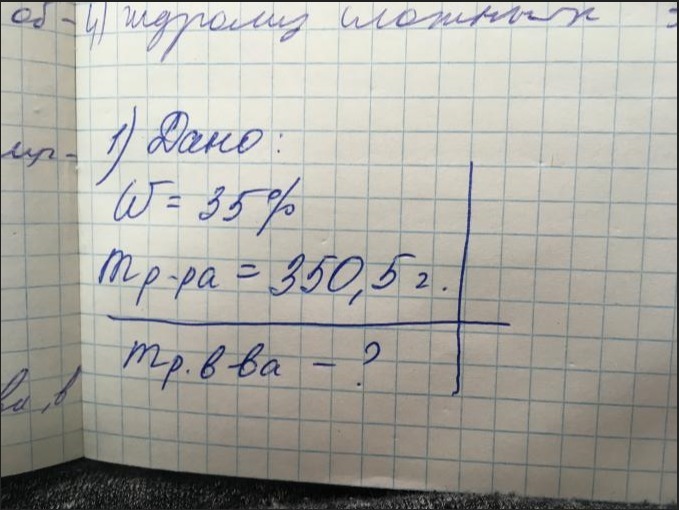 об - 4) гидролиз сложных э
1) Дано:
W = 35%
mр-ра = 350,5 г.
mр.в-ва - ?